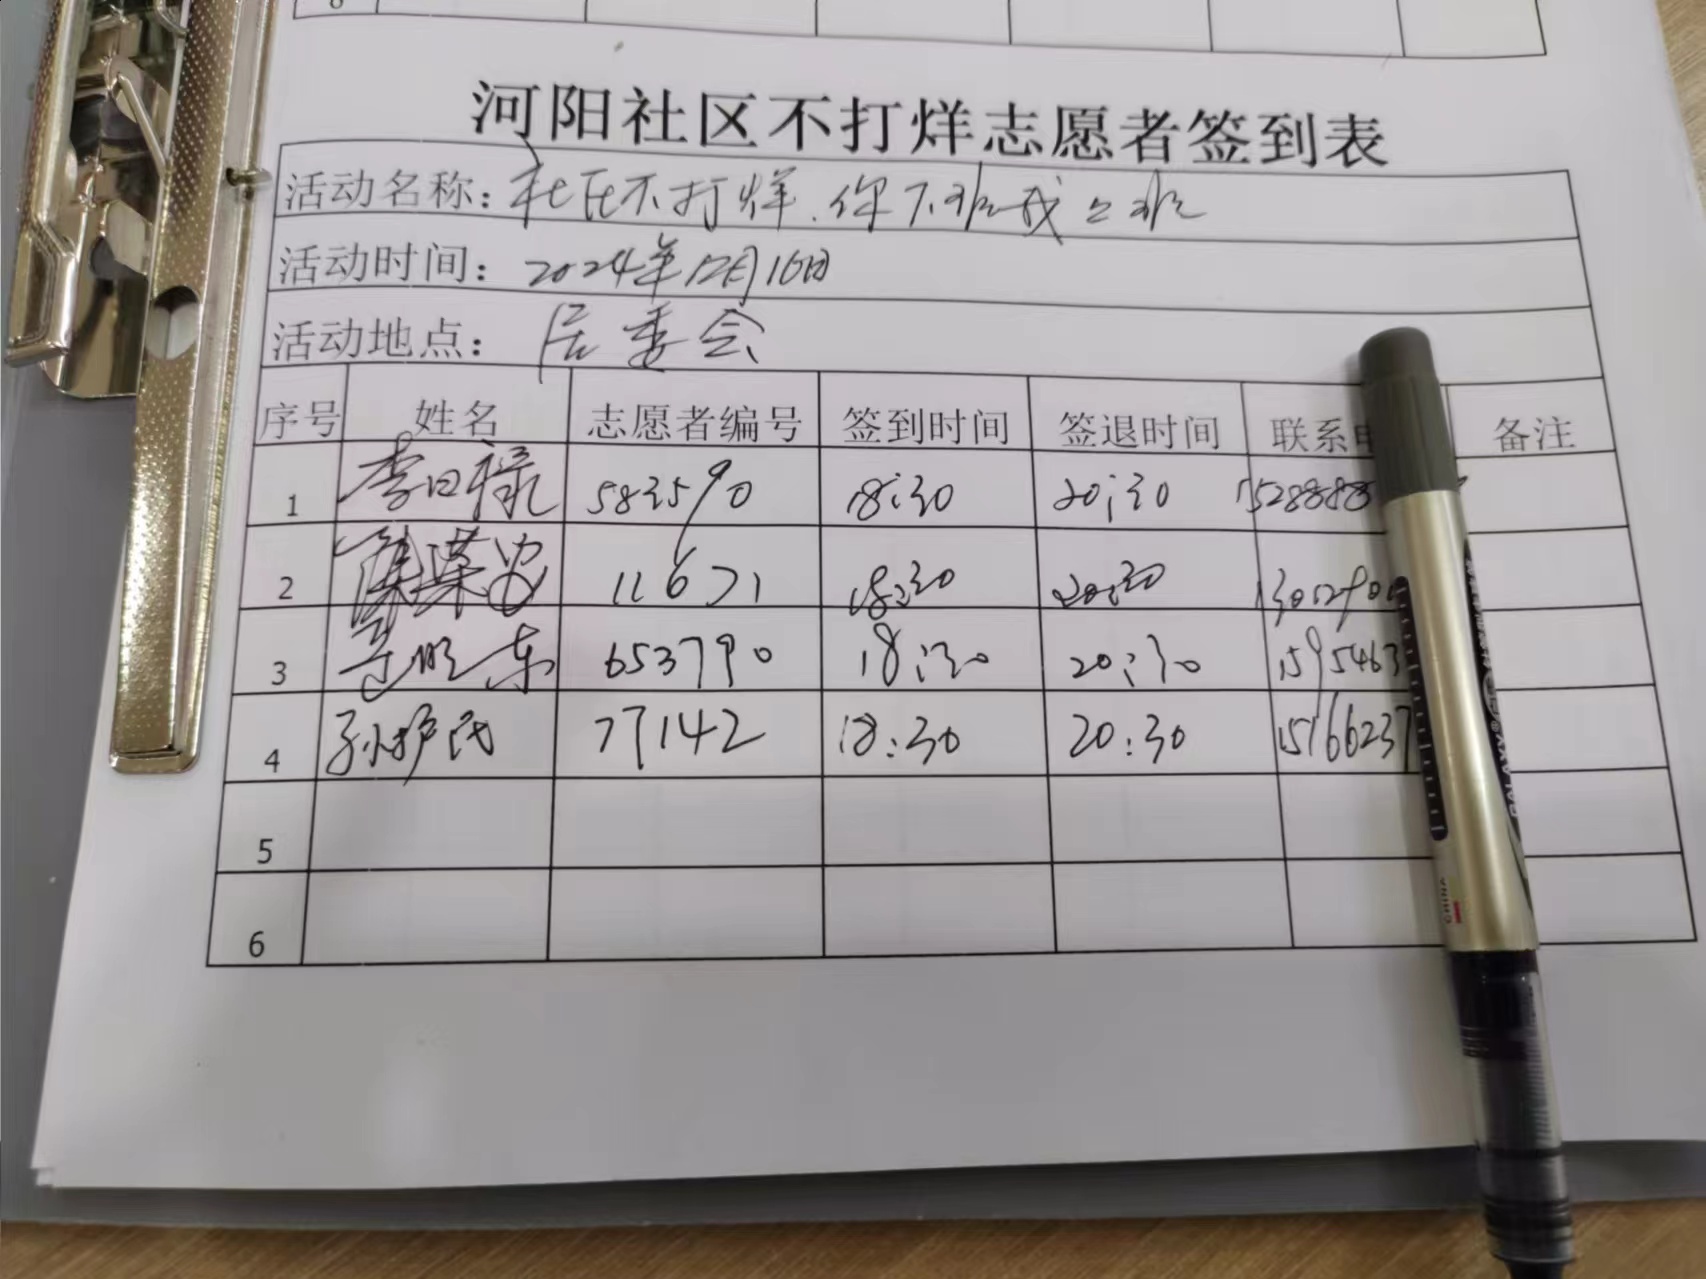 8
河阳社区不打烊志愿者签到表
活动名称：社区不打烊.你下班我上班
活动时间：2024年12月16日
活动地点：居委会
序号 姓名 志愿者编号 签到时间 签退时间 联系 备注
1 李日禄 583590 18:30 20:30 1528888
2 11671 18:30 20:30 1301290
3 653790 18:30 20:30 1595463
4 孙护民 77142 18:30 20:30 15166237
5
6
CHINA